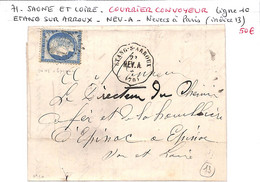 71. SAONE ET LOIRE. COURRIER CONVOYEUR Ligne 40
ETANG SUR ARROUX. NEV-A - Nevers à Paris (indice 13)
50€
ETANG-S-ARROUX
NEV.A.
A Monsieur
Le Directeur du Chemin
de fer et de la houillère
d'Epinac à Epinac
Saone et Loire